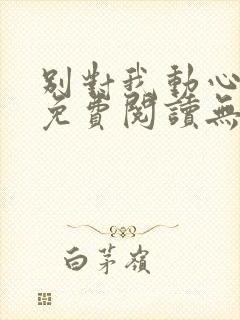 別對我動心
免費閱讀無
白茅嶺